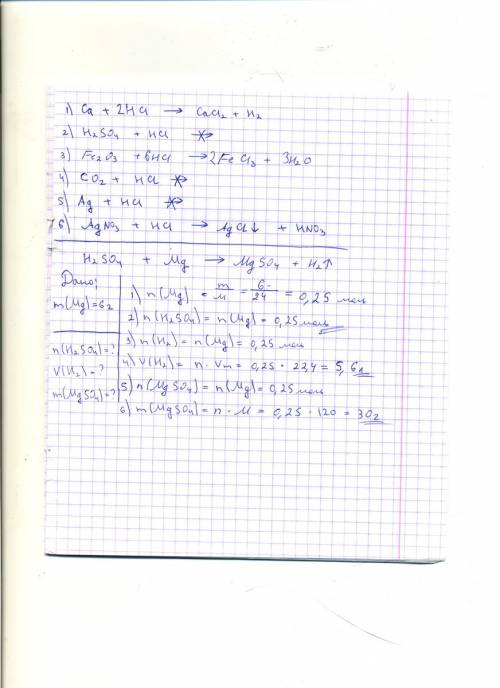 1) Ca + 2HCl → CaCl2 + H2
2) H2SO4 + HCl ↛
3) Fe2O3 + 6HCl → 2FeCl3 + 3H2O
4) CO2 + HCl ↛
5) Ag + HCl ↛
6) AgNO3 + HCl → AgCl↓ + HNO3
H2SO4 + Mg → MgSO4 + H2↑
Дано:
m(Mg)=6г
n(H2SO4)=?
V(H2)=?
m(MgSO4)=?
1) n(Mg) = m/M = 6/24 = 0,25 моль
2) n(H2SO4) = n(Mg) = 0,25 моль
3) n(H2) = n(Mg) = 0,25 моль
4) V(H2) = n · Vm = 0,25 · 22,4 = 5,6л
5) n(MgSO4) = n(Mg) = 0,25 моль
6) m(MgSO4) = n · M = 0,25 · 120 = 30г